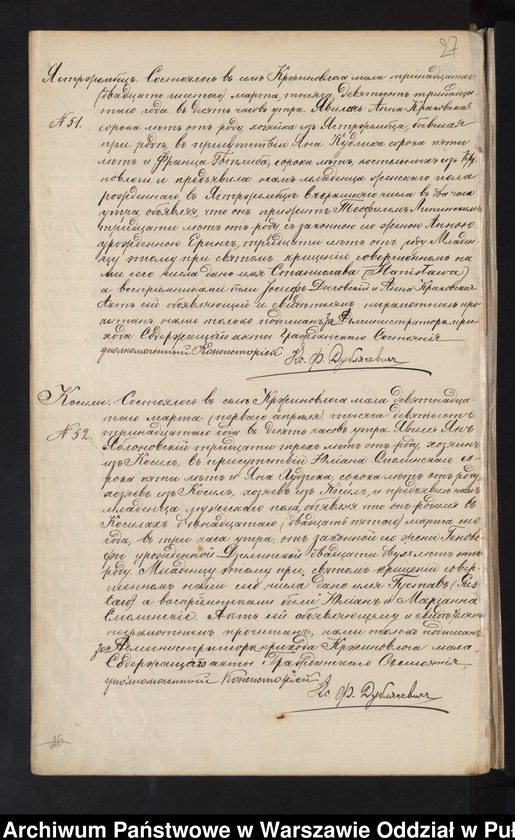 27
Ястржембецъ. Состоялось въ селѣ Кржиновлога мала тринадцатаго
(двадцать шестого) марта, тысяча девятсотъ тринадца-
таго года въ десять часовъ утра. Явилась Анна Краковская
№ 51. сорока лѣтъ отъ роду, хозяйка изъ Ястржембца, бывшая
при родѣ, въ присутствіи Яна Кудлика сорока пяти
лѣтъ и Франца Готлиба, сорока лѣтъ, изъ Кржи-
новлоги и предъявила намъ младенца женскаго пола
рожденнаго въ Ястржембцѣ вчерашняго числа въ два часа
утра, объявляя, что онъ прижитъ Теофилемъ
тридцати лѣтъ отъ роду съ законною его женою Анною
урожденною тридцати лѣтъ отъ роду. Младен-
цу этому при святомъ крещеніи совершонномъ на-
ми сего числа дано имя Станислава (Stanisława)
а воспріемниками были Іосифъ и Анна Краковская
Актъ сей объявляющей и свидѣтелямъ неграмотнымъ про-
читанъ, нами только подписанъ. За Администратора при-
хода Содержащаго акты Гражданскаго Состоянія
уполномоченный Консисторіей Кс. Ф. Дублясевичъ
Косилы. Состоялось въ селѣ Кржиновлога мала девятнадца-
таго марта (перваго апрѣля) тысяча девятсотъ
№ 52. тринадцатаго года въ десять часовъ утра. Явился Янъ
Яблоновскій тридцати трехъ лѣтъ отъ роду, хозяинъ
изъ Косилъ, въ присутствіи Юліана Смолинскаго со-
рока пяти лѣтъ и Яна сорока лѣтъ отъ роду,
хозяевъ изъ Косилъ, хозяевъ изъ Косилъ, и предъявилъ намъ
младенца мужескаго пола, объявляя что онъ родился въ
Косилахъ двѣнадцатаго (двадцать пятаго) марта, сего
года, въ три часа утра, отъ законной его жены Гено-
фы урожденной двадцати двухъ лѣтъ отъ
роду. Младенцу этому при святомъ крещеніи совер-
шенномъ нами сего числа дано имя Густавъ (Gus
taw) а воспріемниками были Юліанъ и Маріанна
Смолинскіе. Актъ сей объявляющему и свидѣтелямъ
неграмотнымъ прочитанъ, нами только подписанъ
за Администратора прихода Кржиновлога мала.
Содержащаго акты Гражданскаго Состоянія
уполномоченный Консисторіей.
Кс. Ф. Дублясевичъ
26
Archiwum Państwowe w Warszawie Oddział w Puł